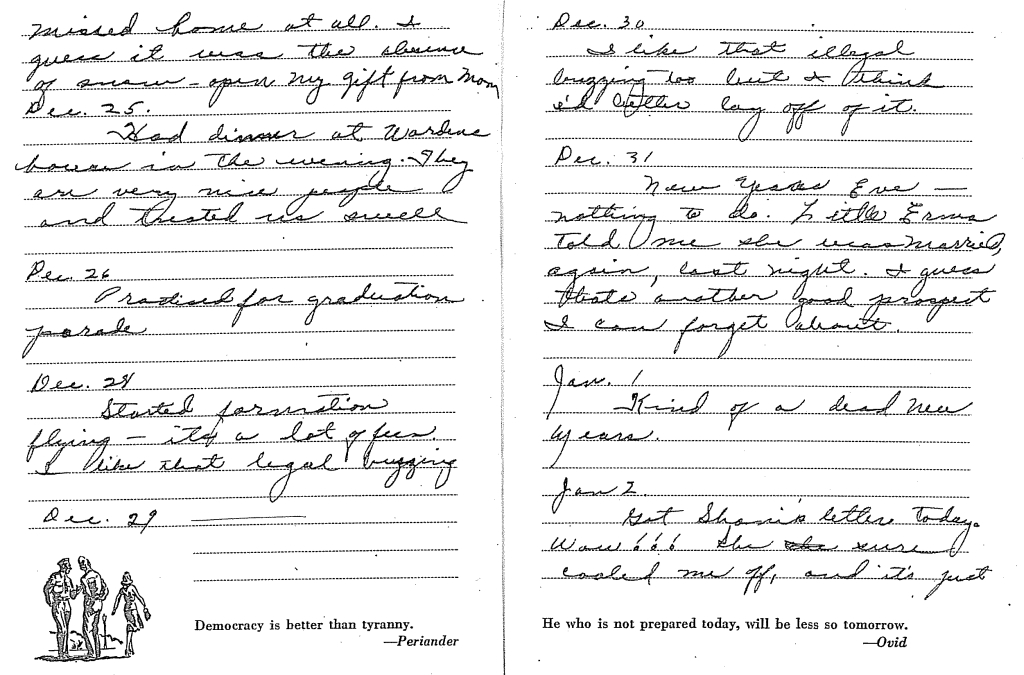 missed home at all. I
guess it was the absence
of snow - open my gift from Mom
Dec. 25.
Had dinner at Wardens
house in the evening. They
are very nice people
and treated us swell
Dec. 26
Practised for graduation
parade
Dec. 28
Started formation
flying - its a lot of fun.
I like that legal buzzing
Dec. 29
Democracy is better than tyranny.
—Periander
Dec. 30
I like that illegal
buzzing too but I think
i'd better lay off of it.
Dec. 31
New Years Eve —
nothing to do. Little Erma
told me she was married,
again, last night. I guess
thats another good prospect
I can forget about.
Jan. 1
Kind of a dead New
Years.
Jan 2.
Got letter today.
Wow!!! She she sure
cooled me off, and it's just
He who is not prepared today, will be less so tomorrow.
—Ovid